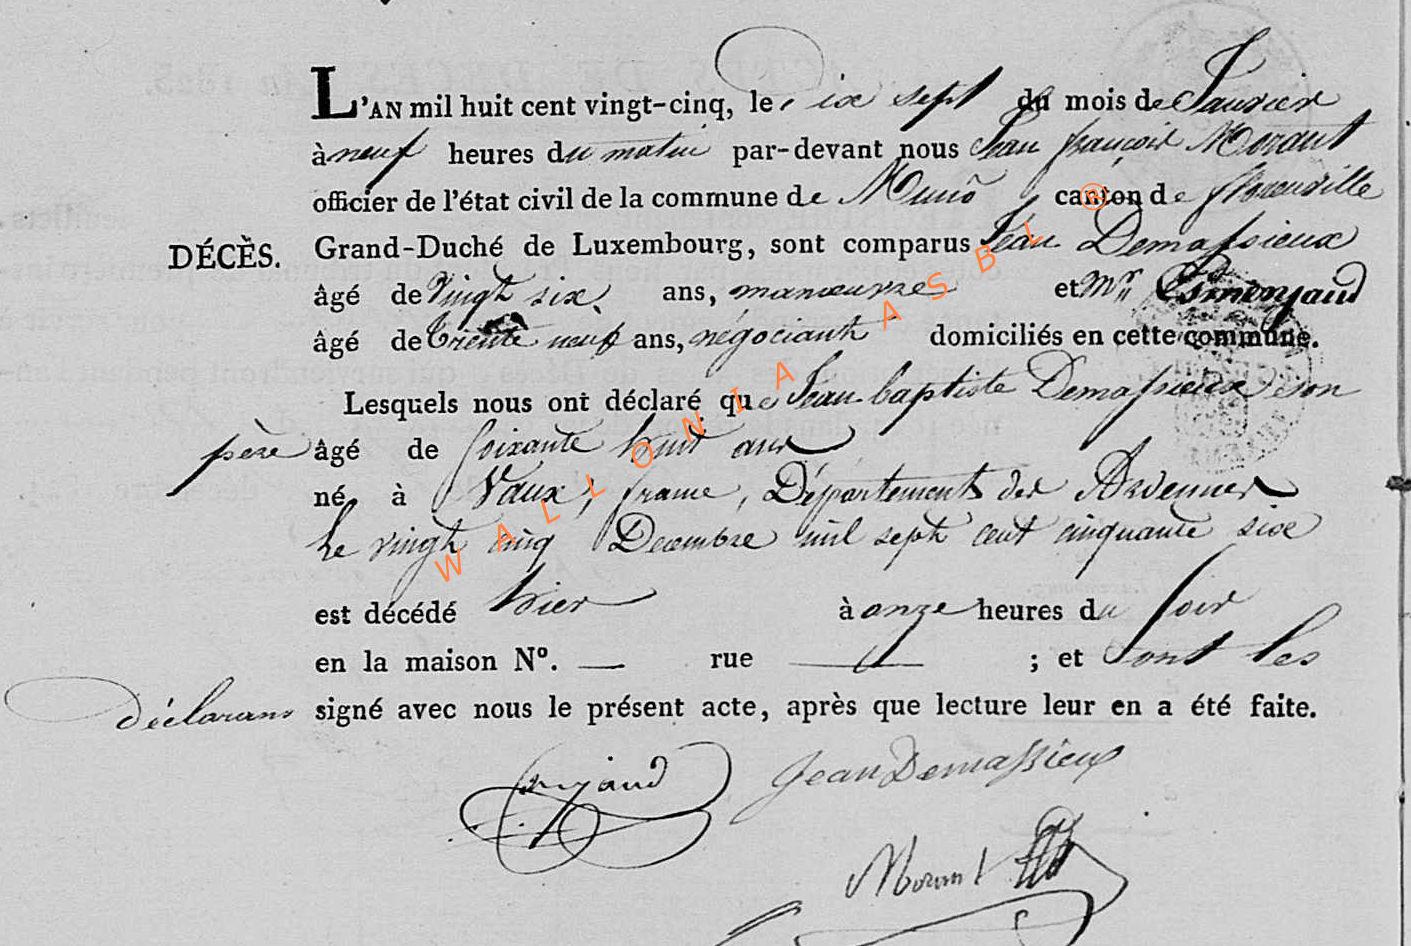 L'AN mil huit cent vingt-cinq, le dix sept du mois de Janvier
à neuf heures du matin par-devant nous Jean françois Morant
officier de l'état civil de la commune de Muno canton de florenville
DÉCÈS. Grand-Duché de Luxembourg, sont comparus Jean Demassieux
âgé de Vingt six ans, manœuvre et Mr
âgé de trente neuf ans, négociant domiciliés en cette commune.
Lesquels nous ont déclaré que Jean baptiste Demassieux son
père âgé de soixante huit ans
né à Vaux, france, Département des Ardennes
le vingt cinq Decembre mil sept cent cinquante six
est décédé hier à onze heures du soir
en la maison N°. — rue — ; et sont les
déclarans signé avec nous le présent acte, après que lecture leur en a été faite.
Jean Demassieux
Morant
WALLONIA ASBL ®